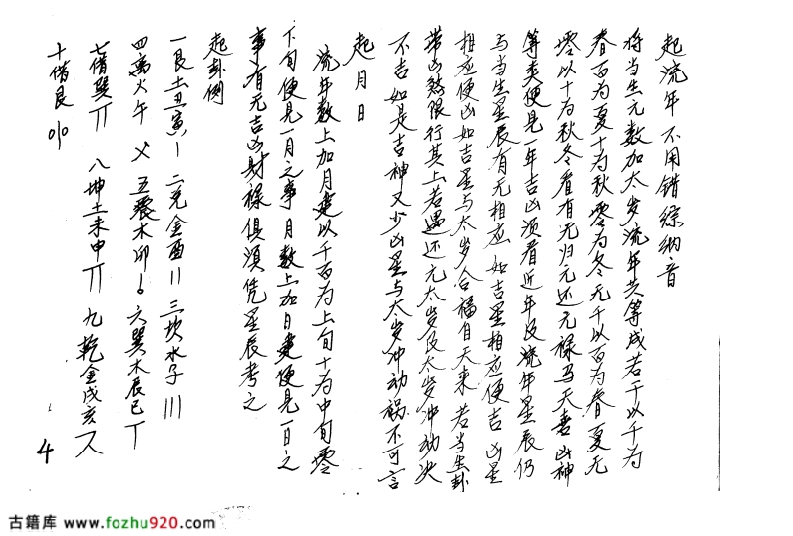 起流年不用错综纳音
将当生元数加太岁流年共等成若干以千为
春百为夏十为秋零为冬无千以百为春夏无
零以十为秋冬看有无归元还元禄马天喜凶神
等类便见一年吉凶须看近年及流年星辰仍
与当生星辰有无相应如吉星相应便吉凶星
相应便凶如吉星与太岁合福自天来若当生卦
带凶煞限行其上若遇还元太岁及太岁冲动决
不吉如是吉神又少凶星与太岁冲动祸不可言
起月日
流年数上加月建以千百为上旬十为中旬零
下旬便见一月之事月数上加日建便见一日之
事有无吉凶财禄俱须凭星辰考之
起卦例
一艮土丑寅 二兑金酉 〢 三坎水子 〣
四离火午 〤 五震木卯 六巽木辰巳 丅
七借巽 〧 八坤土未申 〧 九乾金戌亥
十借艮
4
古籍库 www.fozhu920.com